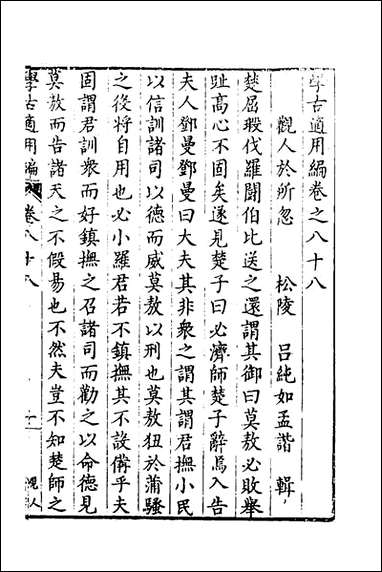 學古適用編卷之八十八
松陵 呂純如孟諧 輯
觀人於所忽
楚屈瑕伐羅鬬伯比送之還謂其御曰莫敖必敗舉
趾高心不固矣遂見楚子曰必濟師楚子辭焉入告
夫人鄧曼鄧曼曰大夫其非衆之謂其謂君撫小民
以信訓諸司以德而威莫敖以刑也莫敖狃於蒲騷
之役將自用也必小羅君若不鎮撫其不設備乎夫
固謂君訓衆而好鎮撫之召諸司而勸之以命德見
莫敖而告諸天之不假昜也不然夫豈不知楚師之
學古適用編
卷八十八
一
觀人